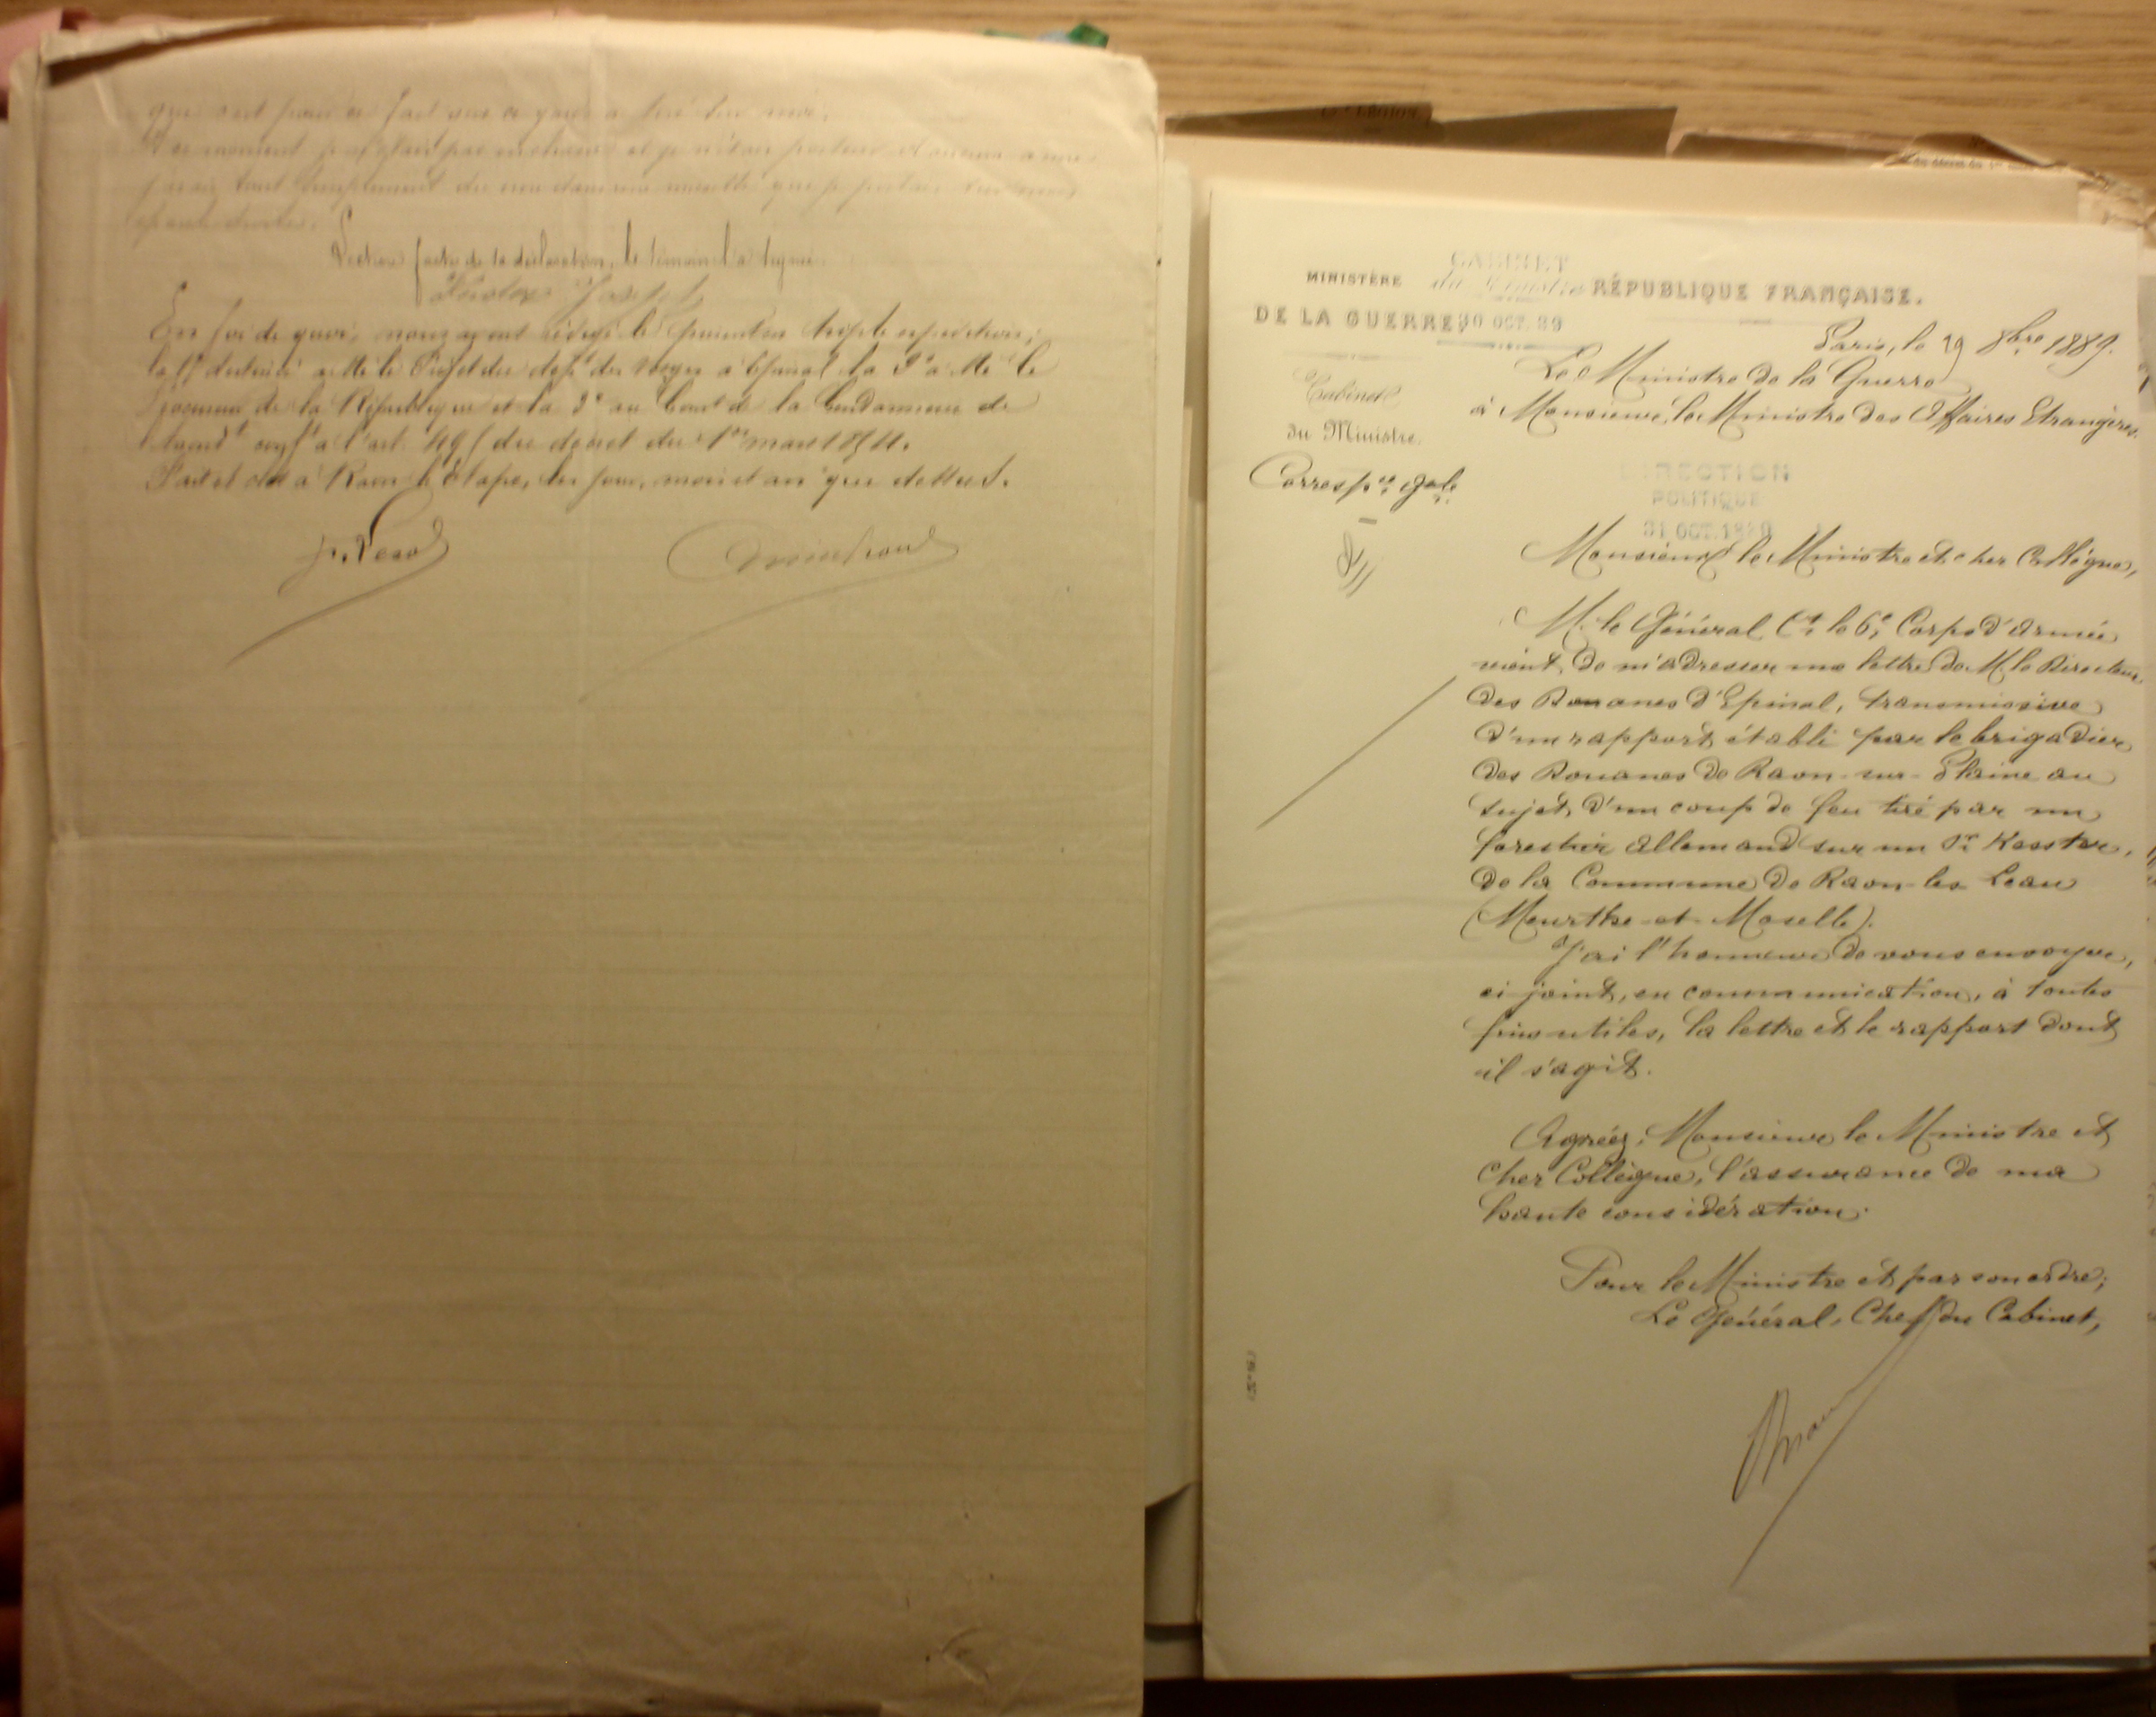 qui ont pour ce fait que ce garde a tiré sur moi.
ce moment je n'étais pas en chasse et je n'étais porteur d'aucune arme.
j'avais tout simplement du que je portais sur mon
épaule droite.
Lecture faite de sa déclaration, le témoin l'a signé.
Joseph
En foi de quoi, nous avons rédigé le présent en triple expédition;
la 1re destinée à Mr le Préfet du dept des Vosges à Epinal la 2e à Mr le
Procureur de la République et la 3e au Comt de la Gendarmerie de
à l'art. 495 du décret du 1er mars 1854.
Fait et clos à Raon-l'Etape, les jour, mois et an que dessus.
MINISTÈRE
DE LA GUERRE
CABINET
du Ministre
30 OCT. 89
RÉPUBLIQUE FRANÇAISE.
Cabinet
du Ministre.
Corresp.ce gale.
Paris, le 29 8bre 1889.
Le Ministre de la Guerre
à Monsieur le Ministre des Affaires Etrangères.
DIRECTION
POLITIQUE
31 OCT. 1889
Monsieur le Ministre et cher Collègue,
M. le Général Ct. le 6e. Corps d'Armée
vient de m'adresser une lettre de M. le Directeur
des Douanes d'Epinal, transmissive
d'un rapport établi par le brigadier
des Douanes de Raon-sur-Plaine au
sujet d'un coup de feu tiré par un
forestier allemand sur un Sr. Kessler,
de la Commune de Raon-les-Leau
(Meurthe-et-Moselle).
J'ai l'honneur de vous envoyer,
ci-joint, en communication, à toutes
fins utiles, la lettre et le rapport dont
il s'agit.
Agréez, Monsieur le Ministre et
cher Collègue, l'assurance de ma
haute considération.
Pour le Ministre et par son ordre;
Le Général, Chef du Cabinet,